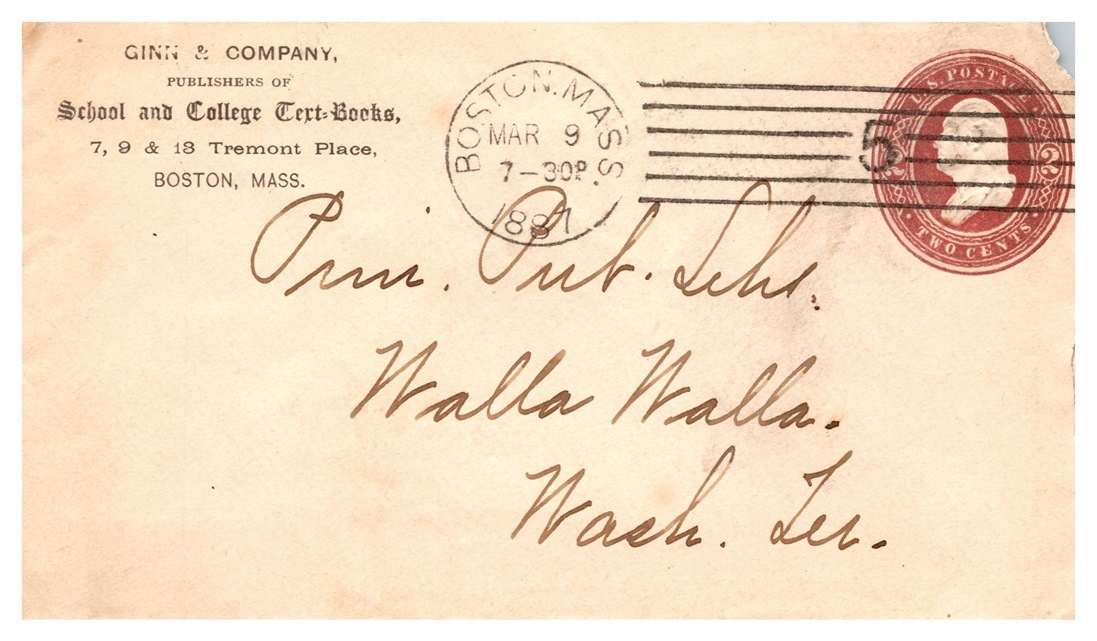 GINN & COMPANY,
PUBLISHERS OF
School and College Text-Books,
7, 9 & 13 Tremont Place,
BOSTON, MASS.
BOSTON. MASS.
MAR 9
7-30P
1887
5
U.S. POSTA
2 2
TWO CENTS
Prin. Pub. Schs.
Walla Walla.
Wash. Ter.